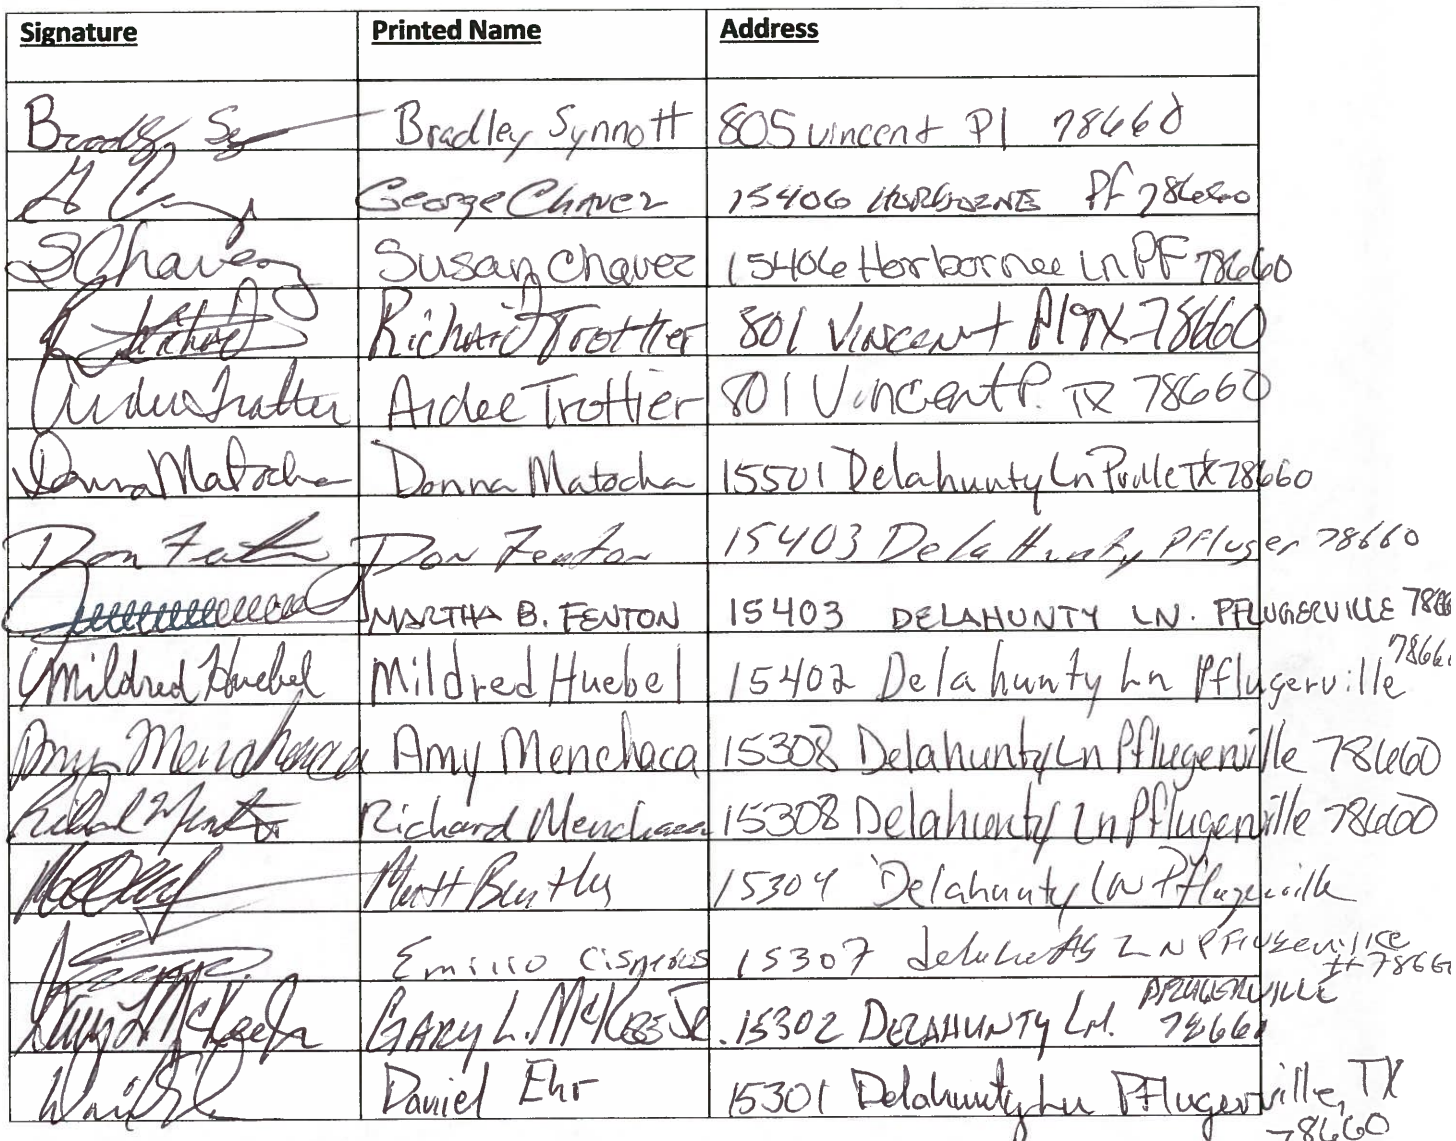 Signature Printed Name Address
Bradley Sy Bradley Synnott 805 Vincent Pl 78660
George Chavez 15406 Pf 78660
S Chavez Susan Chavez 15406 Horbornee Ln PF 78660
Richard Trottier 801 Vincent Pl TX 78660
Ardee Trottier Ardee Trottier 801 Vincent P. TX 78660
Donna Matocha Donna Matocha 15501 Delahunty Ln Pville TX 78660
Don Fenton Don Fenton 15403 Dela Hunty Pfluger 78660
MARTHA B. FENTON 15403 DELAHUNTY LN. PFLUGERVILLE 78660
Mildred Huebel Mildred Huebel 15402 Delahunty Ln Pflugerville 78660
Amy Menchaca Amy Menchaca 15308 Delahunty Ln Pflugerville 78660
Richard Menchaca 15308 Delahunty Ln Pflugerville 78660
Matt 15304 Delahunty LN Pflugerville
Emilio Cisneros 15307 delahunty LN Pflugerville TX 78660
GARY L. McKee Jr. 15302 DELAHUNTY LN. PFLUGERVILLE 78660
Daniel Ehr 15301 Delahunty Ln Pflugerville, TX 78660